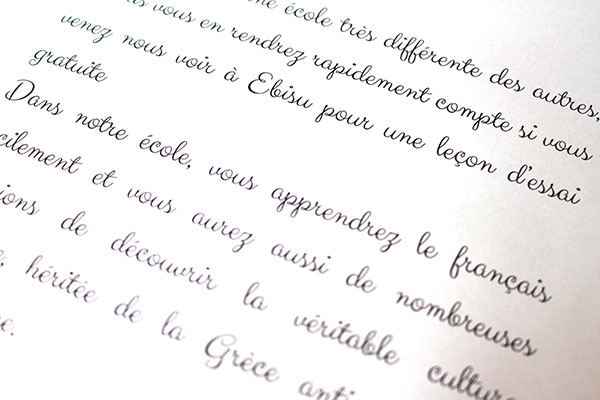 école très différente des autres,
vous en rendrez rapidement compte si vous
venez nous voir à Ebisu pour une leçon d'essai
gratuite
Dans notre école, vous apprendrez le français
cilement et vous aurez aussi de nombreuses
ions de découvrir la véritable cultur
héritée de la Grèce anti